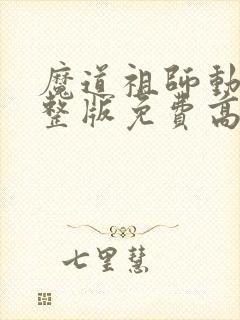 魔道祖師動
整版免費高
七里慧